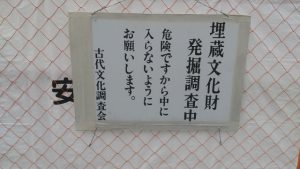 埋蔵文化財
発掘調査中
危険ですから中に
入らないように
お願いします。
古代文化調査会
安